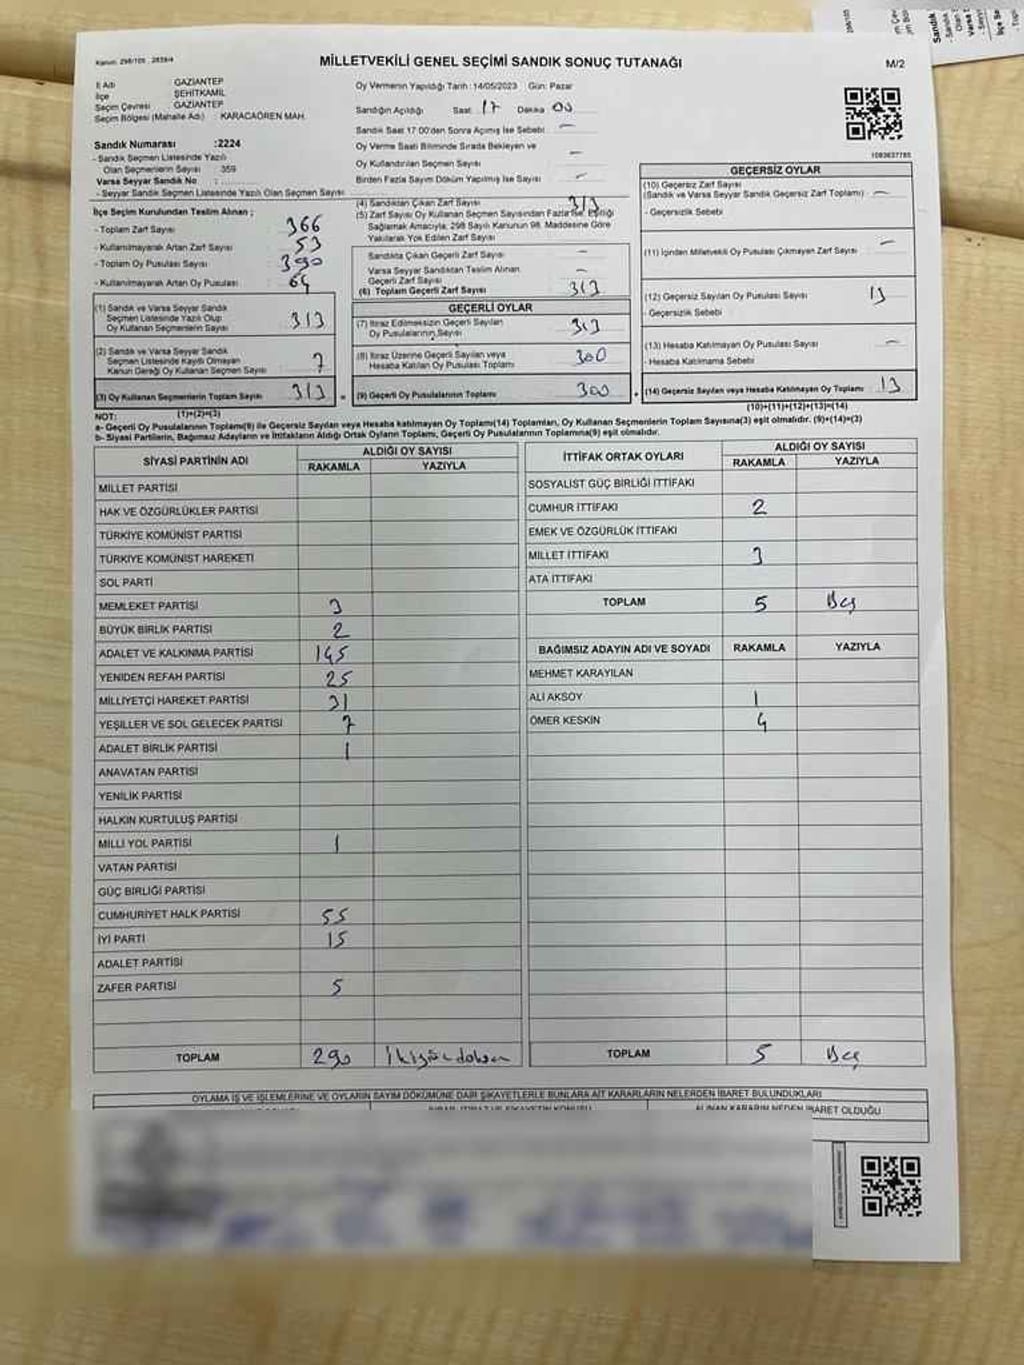 Kanun: 298/105 , 2839/4
MİLLETVEKİLİ GENEL SEÇİMİ SANDIK SONUÇ TUTANAĞI
M/2
İl Adı GAZİANTEP
İlçe ŞEHİTKAMİL
Seçim Çevresi GAZİANTEP
Seçim Bölgesi (Mahalle Adı) : KARACAÖREN MAH.
Sandık Numarası :2224
- Sandık Seçmen Listesinde Yazılı
Olan Seçmenlerin Sayısı 359
Varsa Seyyar Sandık No :
- Seyyar Sandık Seçmen Listesinde Yazılı Olan Seçmen Sayısı
İlçe Seçim Kurulundan Teslim Alınan ;
- Toplam Zarf Sayısı 366
- Kullanılmayarak Artan Zarf Sayısı 53
- Toplam Oy Pusulası Sayısı 390
- Kullanılmayarak Artan Oy Pusulası 64
(1) Sandık ve Varsa Seyyar Sandık
Seçmen Listesinde Yazılı Olup
Oy Kullanan Seçmenlerin Sayısı 313
(2) Sandık ve Varsa Seyyar Sandık
Seçmen Listesinde Kayıtlı Olmayan
Kanun Gereği Oy Kullanan Seçmen Sayısı 7
(3) Oy Kullanan Seçmenlerin Toplam Sayısı 313
(1)+(2)=(3)
Oy Vermenin Yapıldığı Tarih : 14/05/2023 Gün: Pazar
Sandığın Açıldığı Saat: 17 Dakika 00
Sandık Saat 17:00'dan Sonra Açılmış İse Sebebi : –
Oy Verme Saati Bitiminde Sırada Bekleyen ve
Oy Kullandırılan Seçmen Sayısı –
Birden Fazla Sayım Döküm Yapılmış İse Sayısı –
(4) Sandıktan Çıkan Zarf Sayısı 313
(5) Zarf Sayısı Oy Kullanan Seçmen Sayısından Fazla ise, Eşitliği
Sağlamak Amacıyla, 298 Sayılı Kanunun 98. Maddesine Göre
Yakılarak Yok Edilen Zarf Sayısı
Sandıkta Çıkan Geçerli Zarf Sayısı –
Varsa Seyyar Sandıktan Teslim Alınan
Geçerli Zarf Sayısı –
(6) Toplam Geçerli Zarf Sayısı 313
GEÇERLİ OYLAR
(7) İtiraz Edilmeksizin Geçerli Sayılan
Oy Pusulalarının Sayısı 313
(8) İtiraz Üzerine Geçerli Sayılan veya
Hesaba Katılan Oy Pusulası Toplamı 300
= (9) Geçerli Oy Pusulalarının Toplamı 300
1083637785
GEÇERSİZ OYLAR
(10) Geçersiz Zarf Sayısı
(Sandık ve Varsa Seyyar Sandık Geçersiz Zarf Toplamı) –
- Geçersizlik Sebebi
(11) İçinden Milletvekili Oy Pusulası Çıkmayan Zarf Sayısı –
(12) Geçersiz Sayılan Oy Pusulası Sayısı 13
- Geçersizlik Sebebi
(13) Hesaba Katılmayan Oy Pusulası Sayısı –
- Hesaba Katılmama Sebebi
+ (14) Geçersiz Sayılan veya Hesaba Katılmayan Oy Toplamı 13
(10)+(11)+(12)+(13)=(14)
NOT:
a- Geçerli Oy Pusulalarının Toplamı(9) ile Geçersiz Sayılan veya Hesaba katılmayan Oy Toplamı(14) Toplamları, Oy Kullanan Seçmenlerin Toplam Sayısına(3) eşit olmalıdır. (9)+(14)=(3)
b- Siyasi Partilerin, Bağımsız Adayların ve İttifakların Aldığı Ortak Oyların Toplamı, Geçerli Oy Pusulalarının Toplamına(9) eşit olmalıdır.
SİYASİ PARTİNİN ADI
ALDIĞI OY SAYISI
RAKAMLA YAZIYLA
MİLLET PARTİSİ
HAK VE ÖZGÜRLÜKLER PARTİSİ
TÜRKİYE KOMÜNİST PARTİSİ
TÜRKİYE KOMÜNİST HAREKETİ
SOL PARTİ
MEMLEKET PARTİSİ 3
BÜYÜK BİRLİK PARTİSİ 2
ADALET VE KALKINMA PARTİSİ 145
YENİDEN REFAH PARTİSİ 25
MİLLİYETÇİ HAREKET PARTİSİ 31
YEŞİLLER VE SOL GELECEK PARTİSİ 7
ADALET BİRLİK PARTİSİ 1
ANAVATAN PARTİSİ
YENİLİK PARTİSİ
HALKIN KURTULUŞ PARTİSİ
MİLLİ YOL PARTİSİ 1
VATAN PARTİSİ
GÜÇ BİRLİĞİ PARTİSİ
CUMHURİYET HALK PARTİSİ 55
İYİ PARTİ 15
ADALET PARTİSİ
ZAFER PARTİSİ 5
TOPLAM 290 ikiyüzdoksan
İTTİFAK ORTAK OYLARI
ALDIĞI OY SAYISI
RAKAMLA YAZIYLA
SOSYALİST GÜÇ BİRLİĞİ İTTİFAKI
CUMHUR İTTİFAKI 2
EMEK VE ÖZGÜRLÜK İTTİFAKI
MİLLET İTTİFAKI 3
ATA İTTİFAKI
TOPLAM 5 Beş
BAĞIMSIZ ADAYIN ADI VE SOYADI RAKAMLA YAZIYLA
MEHMET KARAYILAN
ALİ AKSOY 1
ÖMER KESKİN 4
TOPLAM 5 Beş
OYLAMA İŞ VE İŞLEMLERİNE VE OYLARIN SAYIM DÖKÜMÜNE DAİR ŞİKAYETLERLE BUNLARA AİT KARARLARIN NELERDEN İBARET BULUNDUKLARI
ALINAN KARARIN NEDEN İBARET OLDUĞU